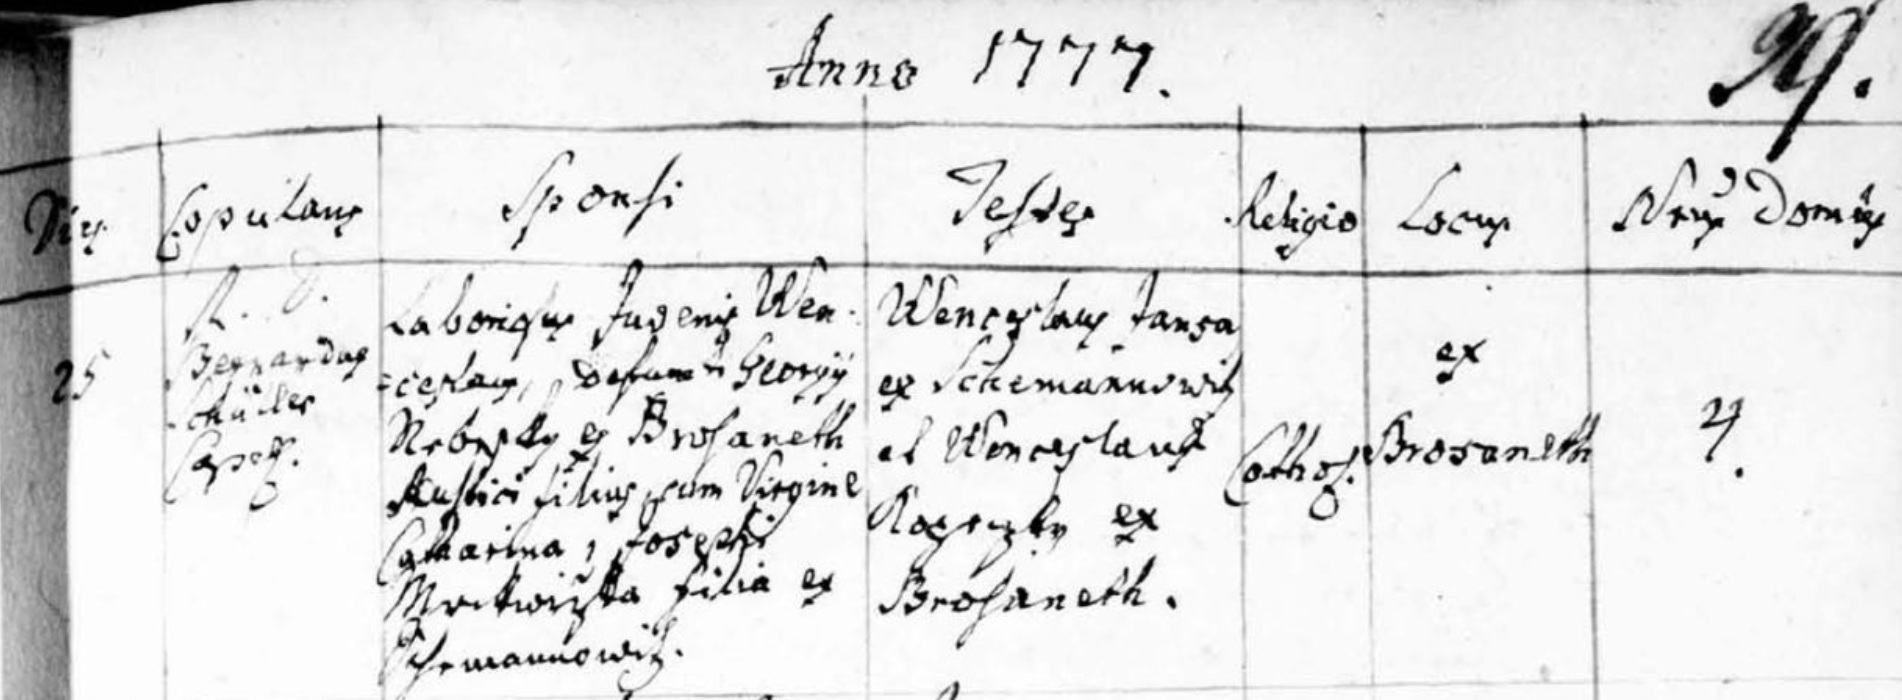 Anno 1777.
99.
Dies Copulans Sponsi Testes Religio Locus Nrus Domus
25
R. D.
Bernardus
Schüller
Capell.
Laboriosus Juvenis Wen-
=ceslaus, defuncti Georgij
Nebesky ex Brosaneth
Rustici filius, cum Virgine
Catharina, Josephi
filia ex
Schemannowitz.
Wenceslaus Jansa
ex Schemannowitz
et Wenceslaus
ex
Brosaneth.
Cathol.
ex
Brosaneth
4.